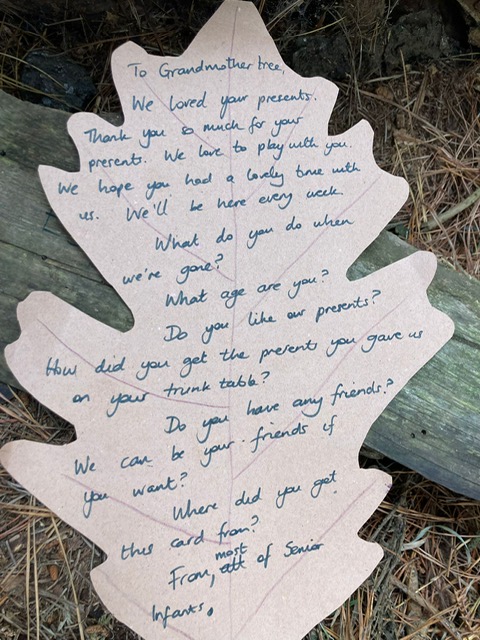 To Grandmother tree,
We loved your presents.
Thank you so much for your
presents. We love to play with you.
We hope you had a lovely time with
us. We'll be here every week.
What do you do when
we're gone?
What age are you?
Do you like our presents?
How did you get the presents you gave us
on your trunk table?
Do you have any friends?
We can be your friends if
you want?
Where did you get
this card from?
most
From, all of Senior
Infants.